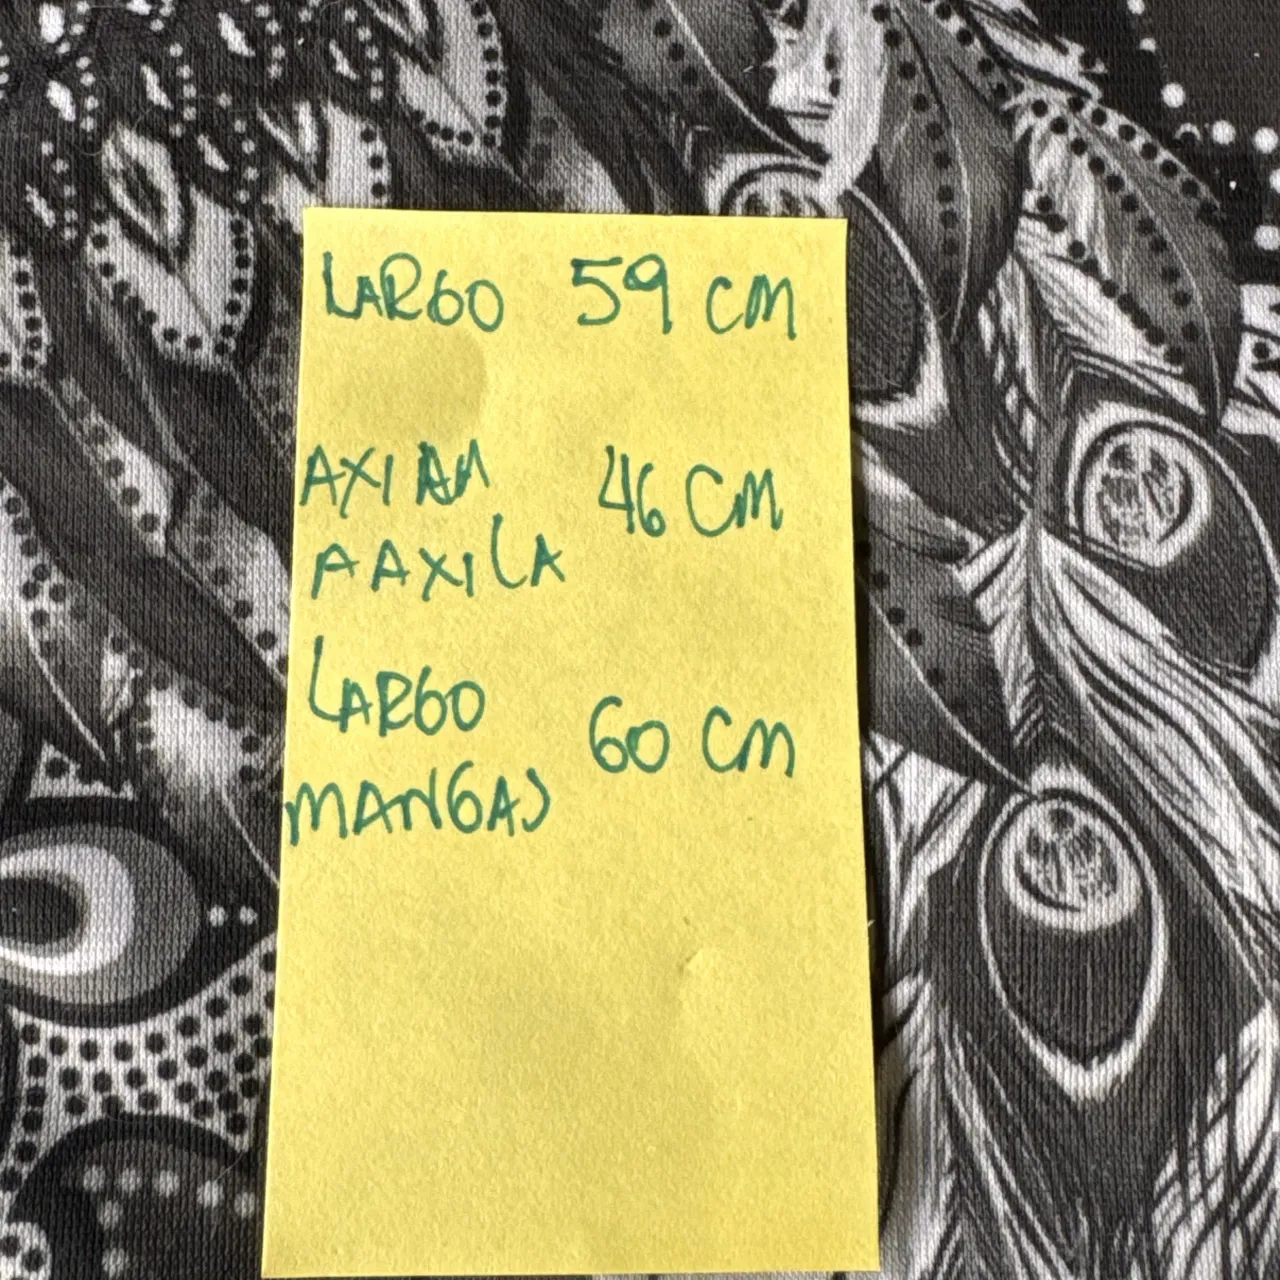 LARGO 59 CM
AXI AM 46 CM
A AXILA
LARGO
60 CM
MANGAS